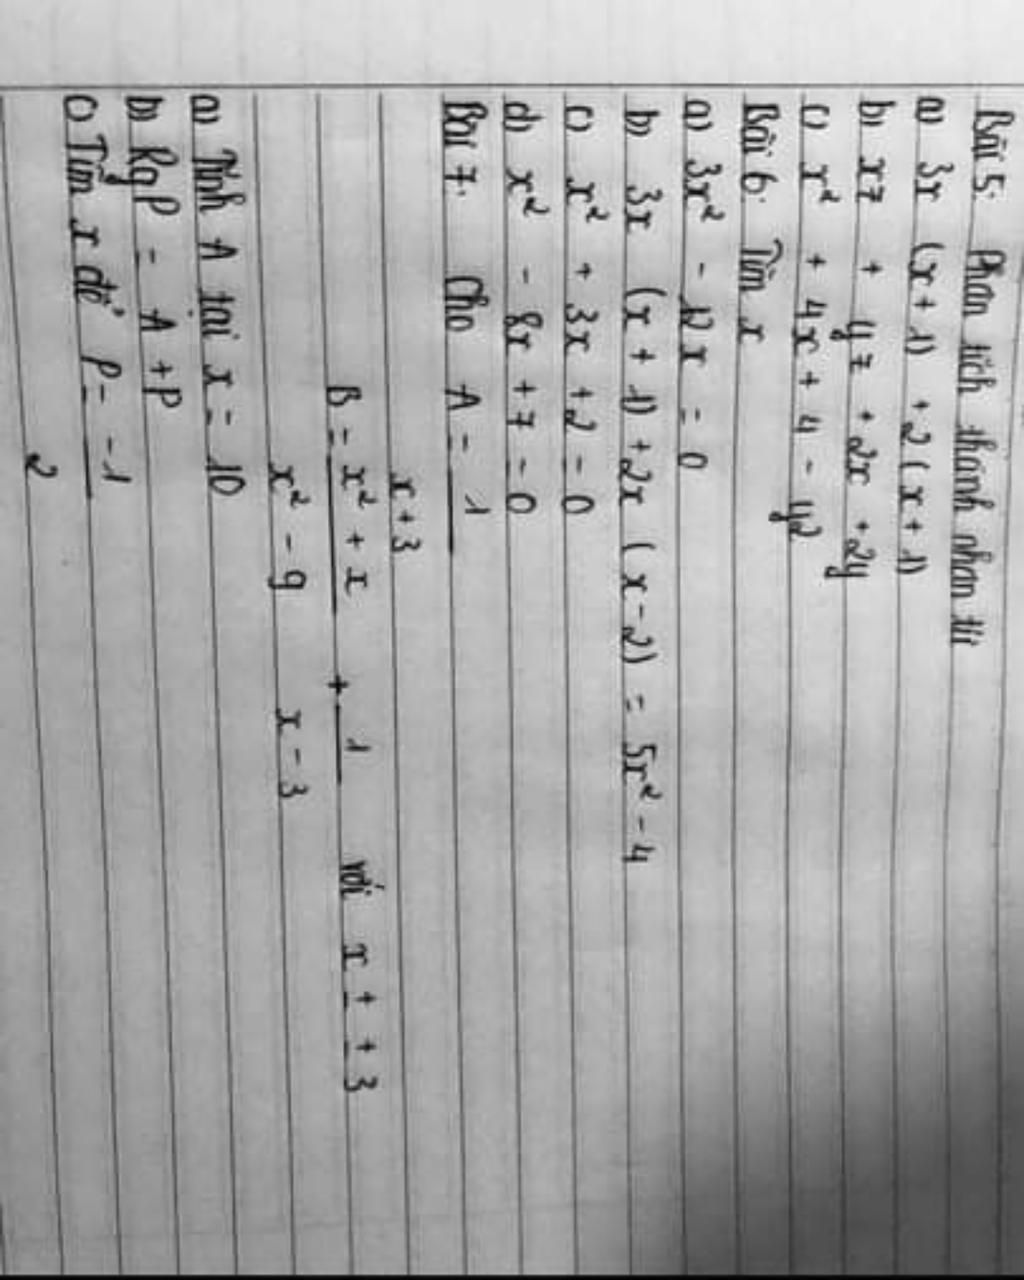 Bài 5: Phân tích thành nhân tử
a) 3x (x+1) +2(x+1)
b) xz + yz + 2x +2y
c) x² + 4x + 4 - y2
Bài 6: Tìm x
a) 3x² - 12x = 0
b) 3x (x+1)+2x (x-2) = 5x² - 4
c) x² + 3x +2 = 0
d) x² - 8x + 7 = 0
Bài 7. Cho A = 1
x+3
B = x² + x + 1 với x ± ± 3
x² - 9 x - 3
a) Tính A tại x = 10
b) RgP = A + P
c) Tìm x để P = -1
2